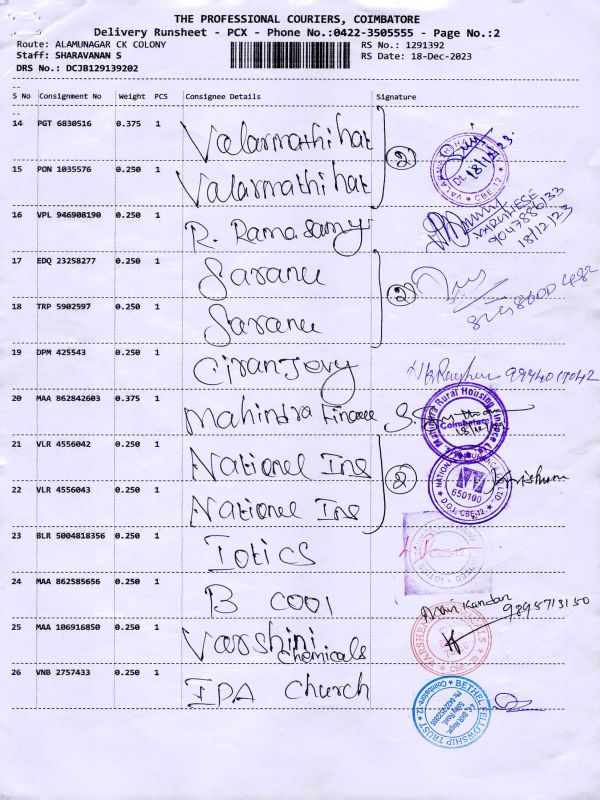 THE PROFESSIONAL COURIERS, COIMBATORE
Delivery Runsheet - PCX - Phone No.:0422-3505555 - Page No.:2
Route: ALAMUNAGAR CK COLONY RS No.: 1291392
Staff: SHARAVANAN S RS Date: 18-Dec-2023
DRS No.: DCJB129139202
S No Consignment No Weight PCS Consignee Details Signature
14 PGT 6830516 0.375 1 Valarmathi hat
18/12/23.
15 PON 1035576 0.250 1 Valarmathi hat
2
CBE-12
16 VPL 946908190 0.250 1 R. Ramasamy
VARGHESE
9047886133
18/12/23
17 EDQ 23258277 0.250 1 Saranu
18 TRP 5902597 0.250 1 Saranu
2
19 DPM 425543 0.250 1 Ciranjevy
20 MAA 862842603 0.375 1 Mahindra Finance
Mahindra Rural Housing Finance
Coimbatore
21 VLR 4556042 0.250 1 National Ins
22 VLR 4556043 0.250 1 National Ins
2
650100
CBE-12
23 BLR 5004818356 0.250 1 Iotics
24 MAA 862585656 0.250 1 B cool
9895713150
25 MAA 106916850 0.250 1 Varshini chemicals
26 VNB 2757433 0.250 1 IPA church
BETHEL FELLOWSHIP TRUST
Coimbatore-12